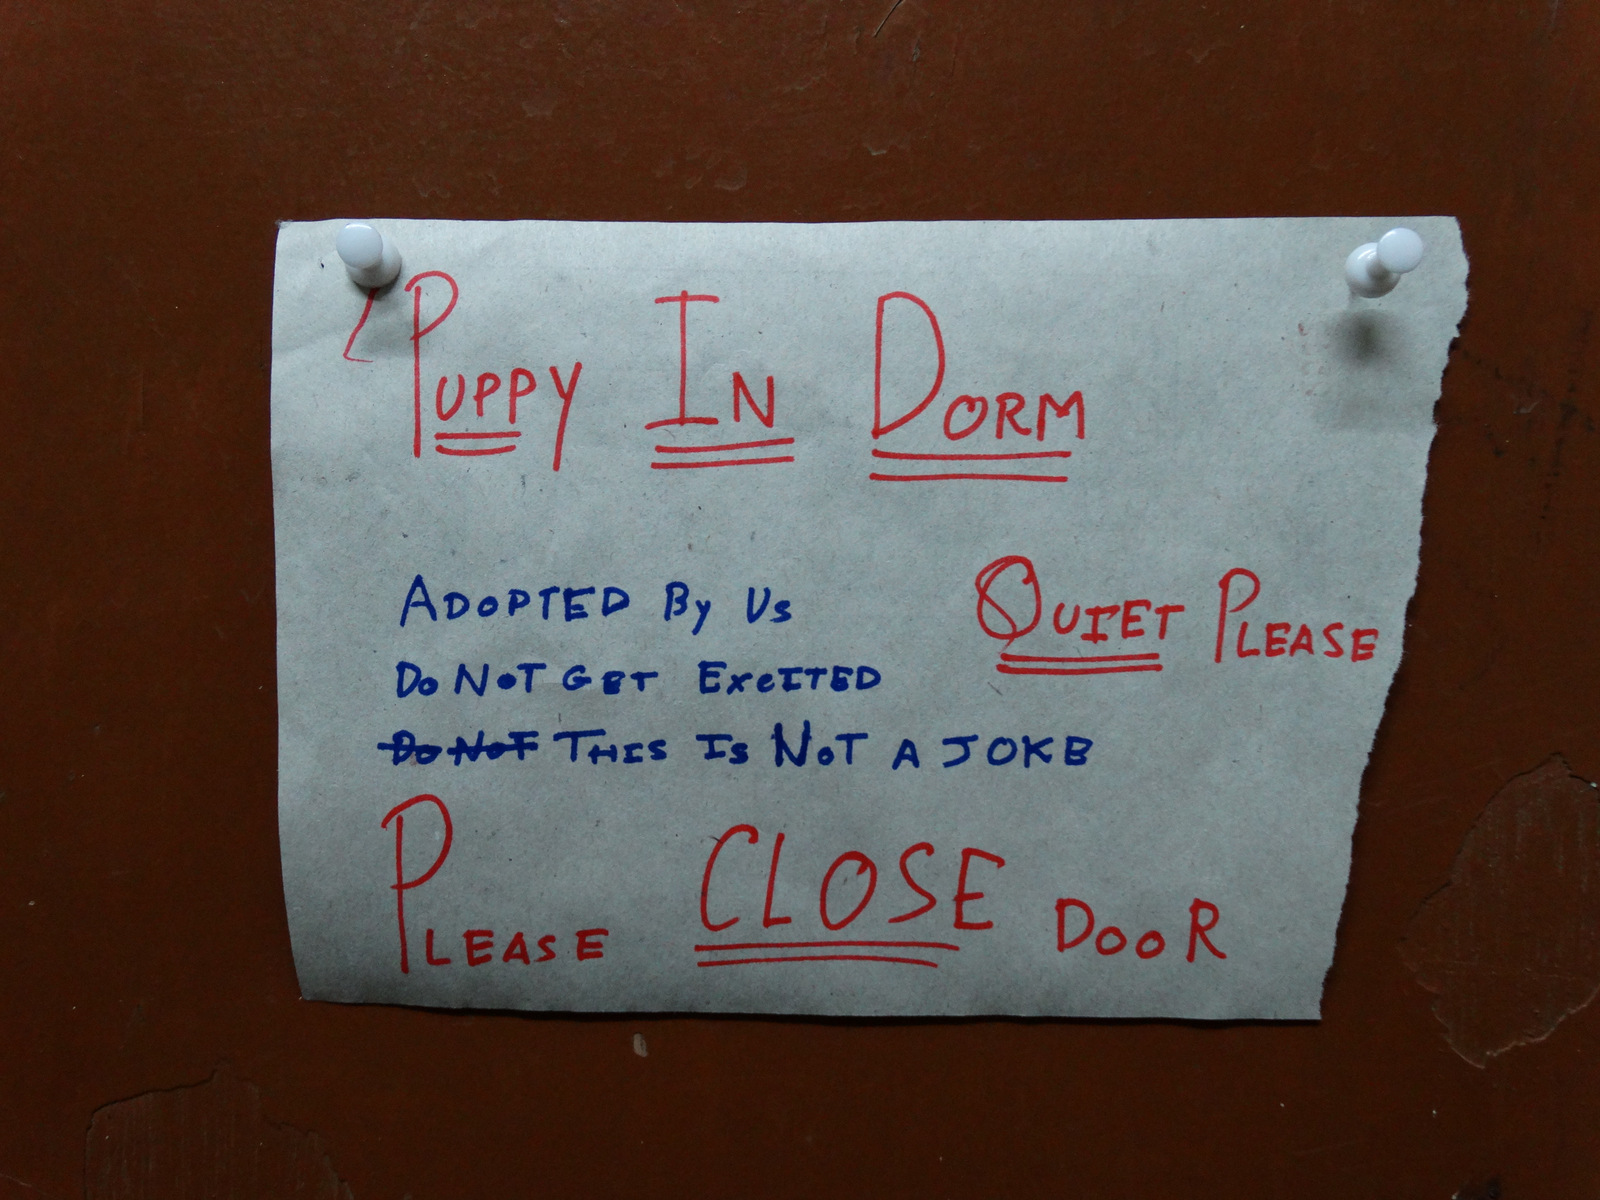 Puppy In Dorm
Adopted By Us
Quiet Please
Do Not Get Excited
Do Not This Is Not A JOKE
Please CLOSE DooR